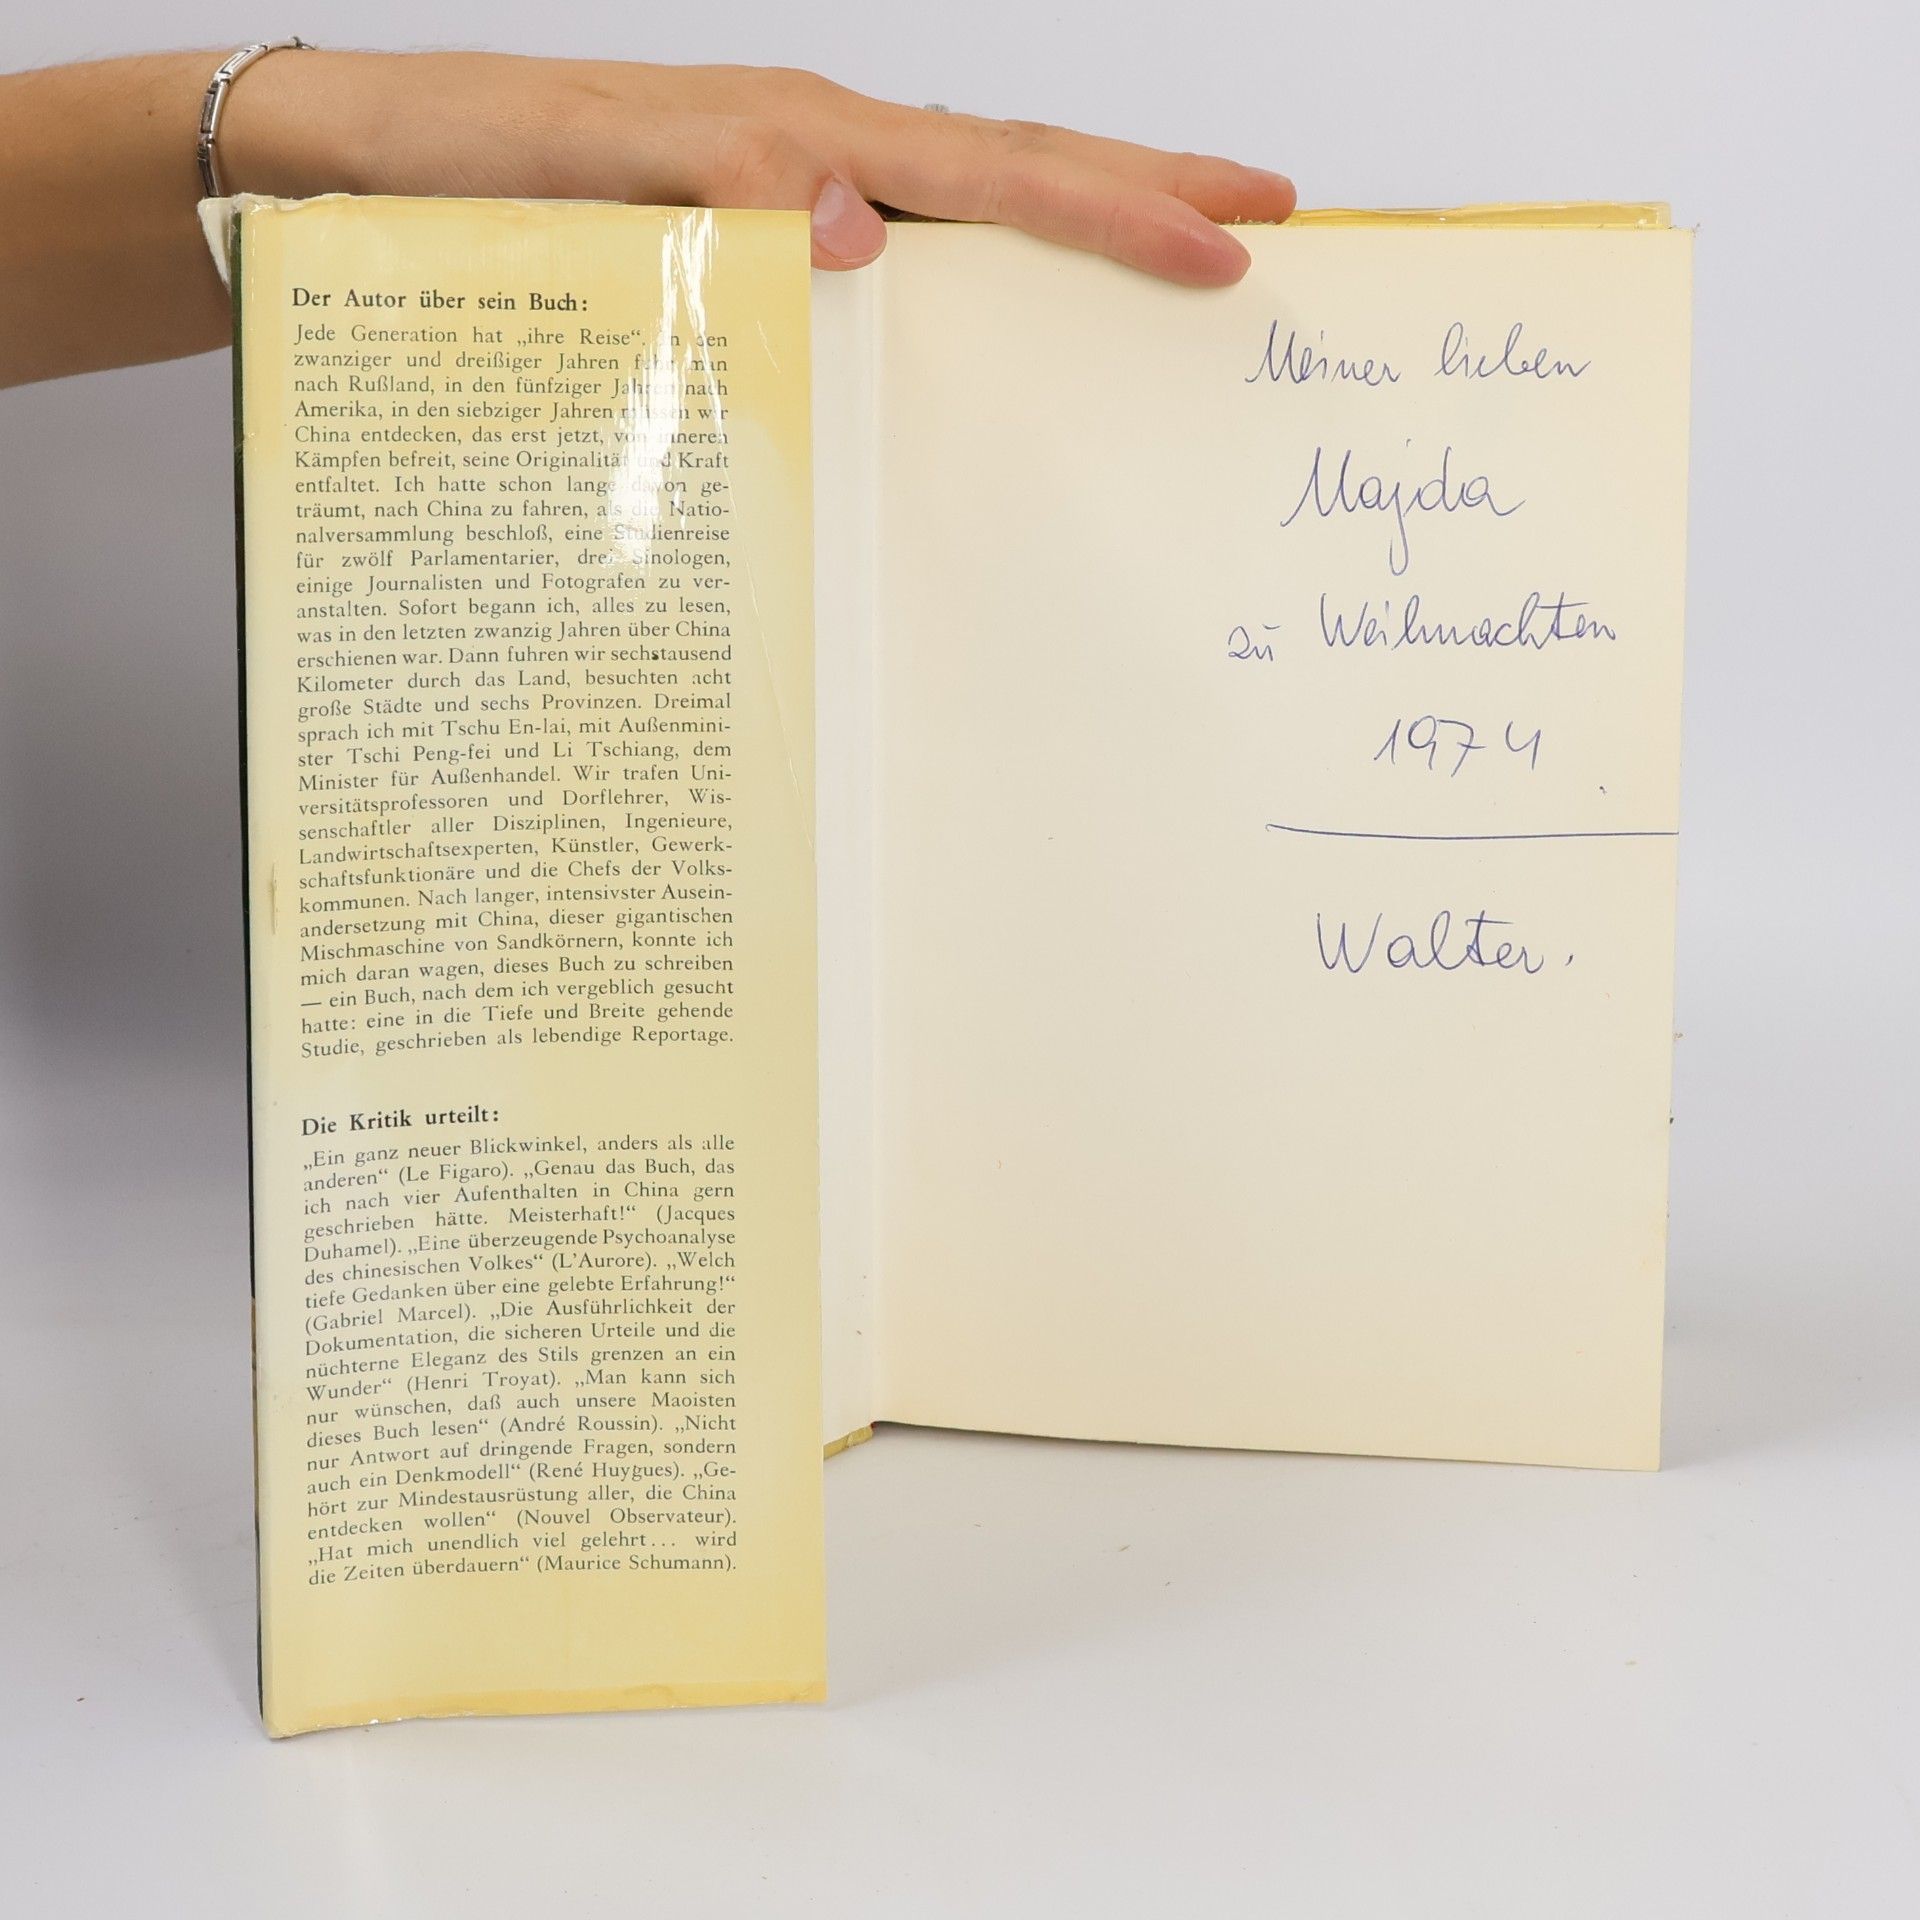 Der Autor über sein Buch:
Jede Generation hat „ihre Reise“. In den
zwanziger und dreißiger Jahren fuhr man
nach Rußland, in den fünfziger Jahren nach
Amerika, in den siebziger Jahren müssen wir
China entdecken, das erst jetzt, von inneren
Kämpfen befreit, seine Originalität und Kraft
entfaltet. Ich hatte schon lange davon ge-
träumt, nach China zu fahren, als die Natio-
nalversammlung beschloß, eine Studienreise
für zwölf Parlamentarier, drei Sinologen,
einige Journalisten und Fotografen zu ver-
anstalten. Sofort begann ich, alles zu lesen,
was in den letzten zwanzig Jahren über China
erschienen war. Dann fuhren wir sechstausend
Kilometer durch das Land, besuchten acht
große Städte und sechs Provinzen. Dreimal
sprach ich mit Tschu En-lai, mit Außenmini-
ster Tschi Peng-fei und Li Tschiang, dem
Minister für Außenhandel. Wir trafen Uni-
versitätsprofessoren und Dorflehrer, Wis-
senschaftler aller Disziplinen, Ingenieure,
Landwirtschaftsexperten, Künstler, Gewerk-
schaftsfunktionäre und die Chefs der Volks-
kommunen. Nach langer, intensivster Ausein-
andersetzung mit China, dieser gigantischen
Mischmaschine von Sandkörnern, konnte ich
mich daran wagen, dieses Buch zu schreiben
— ein Buch, nach dem ich vergeblich gesucht
hatte: eine in die Tiefe und Breite gehende
Studie, geschrieben als lebendige Reportage.
Die Kritik urteilt:
„Ein ganz neuer Blickwinkel, anders als alle
anderen“ (Le Figaro). „Genau das Buch, das
ich nach vier Aufenthalten in China gern
geschrieben hätte. Meisterhaft!“ (Jacques
Duhamel). „Eine überzeugende Psychoanalyse
des chinesischen Volkes“ (L'Aurore). „Welch
tiefe Gedanken über eine gelebte Erfahrung!“
(Gabriel Marcel). „Die Ausführlichkeit der
Dokumentation, die sicheren Urteile und die
nüchterne Eleganz des Stils grenzen an ein
Wunder“ (Henri Troyat). „Man kann sich
nur wünschen, daß auch unsere Maoisten
dieses Buch lesen“ (André Roussin). „Nicht
nur Antwort auf dringende Fragen, sondern
auch ein Denkmodell“ (René Huygues). „Ge-
hört zur Mindestausrüstung aller, die China
entdecken wollen“ (Nouvel Observateur).
„Hat mich unendlich viel gelehrt... wird
die Zeiten überdauern“ (Maurice Schumann).
Meiner lieben
Majda
zu Weihnachten
1974
Walter.